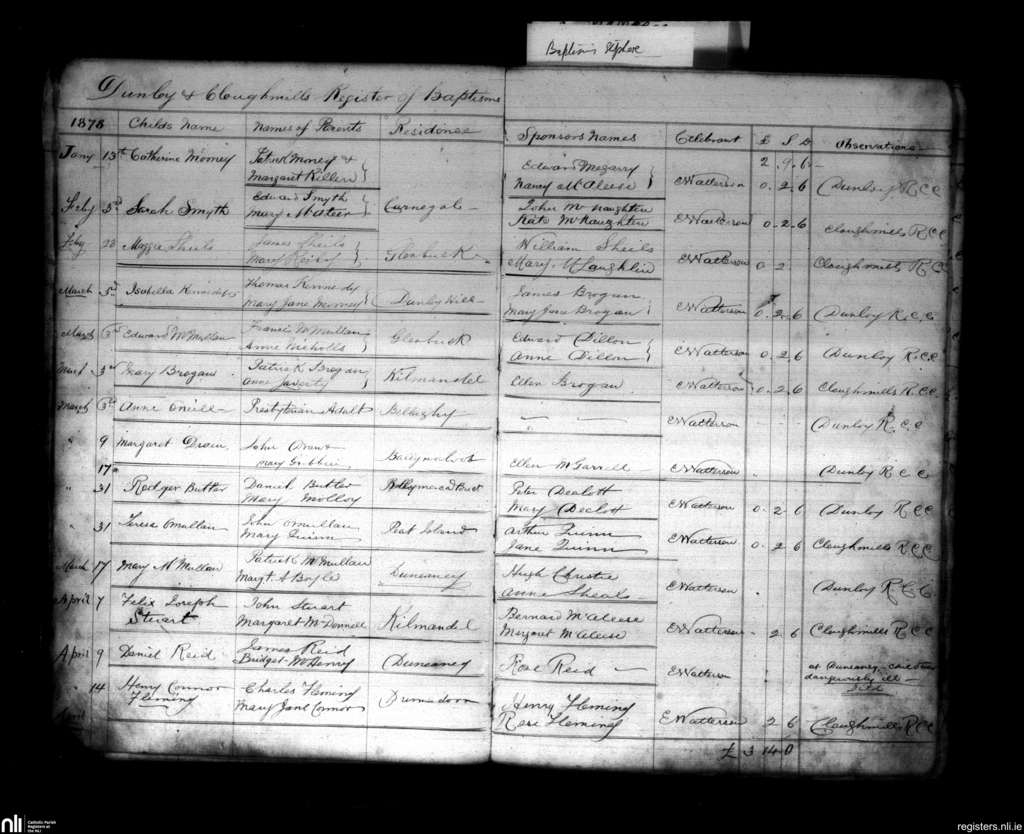 Baptisms Xtphere
Dunloy & Cloughmills Register of Baptisms
1878 Childs Name Names of Parents Residence Sponsors Names Celebrant £ S D Observations
2 . 9 . 6 -
Jany 13th Catherine Morney Patrick Morney & Edward Megarry
Margaret Killen Nancy McAleese E Watterson 0 . 2 . 6 Dunloy R.C.C
Feby 3rd Sarah Smyth Edward Smyth Carnegal John McNaughten
Mary Kate McNaughten E Watterson 0 . 2 . 6 Cloughmills R.C.C
Feby Maggie Sheils James Sheils Glenbuck William Sheils
Mary Mary McLaughlin E Watterson 0 . 2 Cloughmills R.C
March Isabella Kennedy Thomas Kennedy Dunloy Hill James Brogan
Mary Jane Morney Mary Jane Brogan E Watterson 0 . 2 . 6 Dunloy R.C.C
March 3rd Edward McMullan Francis McMullan Glenbuck Edward Dillon
Anne Nicholls Anne Dillon E Watterson 0 . 2 6 Dunloy R.C.C
March 3rd Mary Brogan Patrick Brogan Kilmandel Ellen Brogan
Anne E Watterson 0 . 2 6 Cloughmills R.C.C
March 3rd Anne O'Neill Presbyterian Adult Bellaghy - - E Watterson Dunloy R.C.C
" 9 Margaret Drain John Drain
Mary Gribbin Ellen McGarrell E Watterson Dunloy R.C.C
17
" 31 Rodger Butler Daniel Butler Peter Dealott
Mary Molloy Mary Dealott E Watterson 0 . 2 6 Dunloy R.C.C
" 31 Teresa O'Mullan John O'Mullan Peat Island Arthur Quinn
Mary Quinn Jane Quinn E Watterson 0 . 2 6 Cloughmills R.C.C
March 17 Mary McMullan Patrick McMullan Duneaney Hugh Christie
Margt. A Boyle Anne Sheals E Watterson Dunloy R.C.C
April 7 Felix Joseph John Stuart Kilmandel Bernard McAleese
Stuart Margaret McDonnell Margaret McAleese E Watterson 2 6 Cloughmills R.C.C
April 9 Daniel Reid James Reid Duneaney Rose Reid E Watterson at Duneaney - child
Bridget McHenry dangerously ill -
Died
" 14 Henry Connor Charles Fleming Drumadoon Henry Fleming
Fleming Mary Jane Connor Rose Fleming E Watterson 2 6 Cloughmills R.C.C
April
£ 3 14 0
nli Catholic Parish
Registers at
the NLI
registers.nli.ie